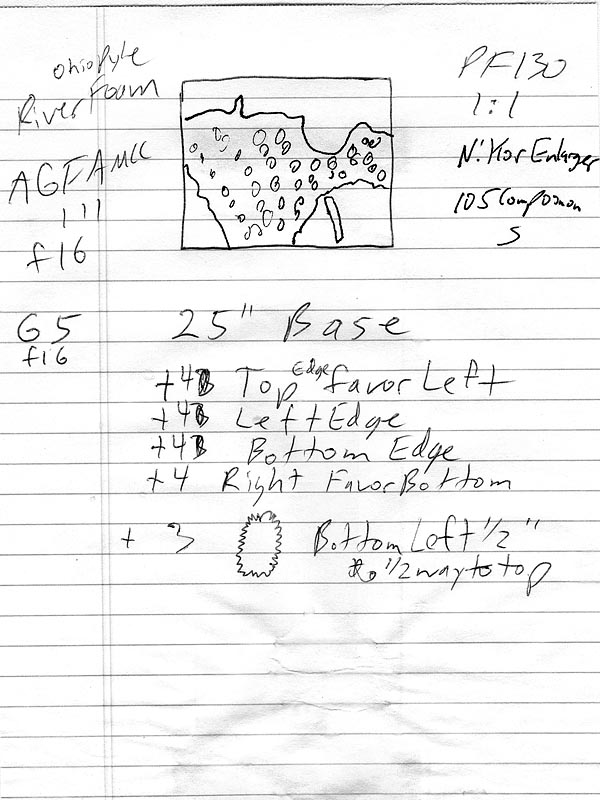 OhioPyle
River Foam
AGFA MCC
111
f16
PF130
1:1
Nikor Enlarger
105 Componon
S
G5
f16
25" Base
+4 Top Edge favor Left
+4 Left Edge
+4 Bottom Edge
+4 Right Favor Bottom
+ 3 Bottom Left 1/2"
1/2 way to top